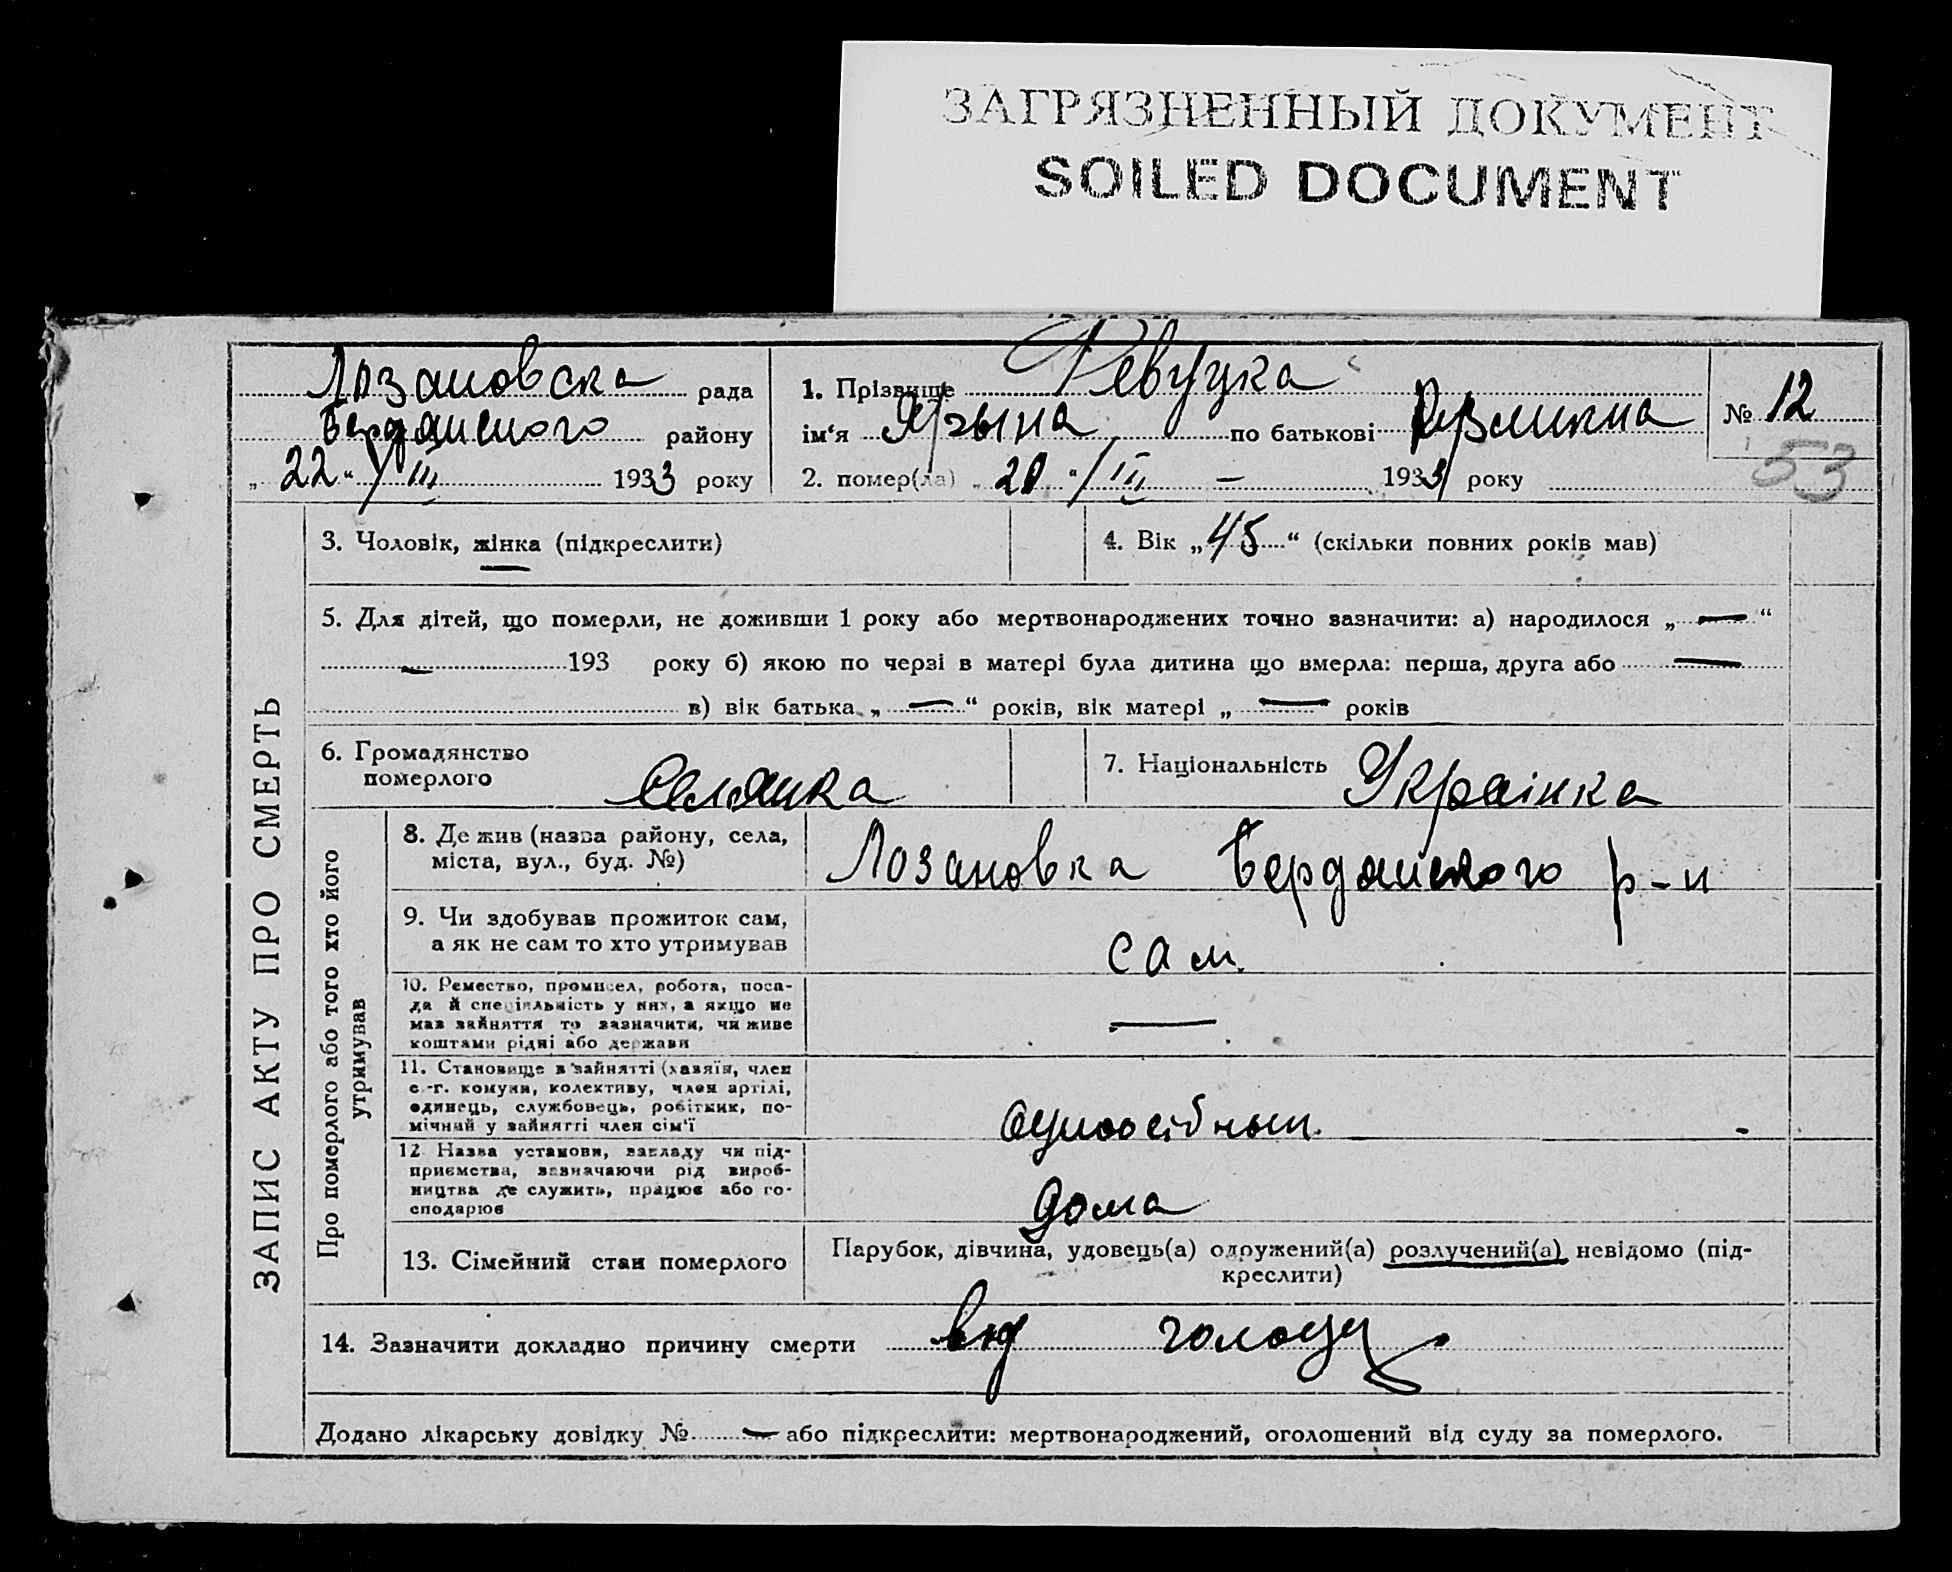 ЗАГРЯЗНЕННЫЙ ДОКУМЕНТ
SOILED DOCUMENT
Лозановска рада
Бердянского району
„ 22 “ / III 1933 року
1. Прізвище Ревуцка
ім‘я по батькові
2. помер(ла) „ 20 “ / III — 1933 року
№ 12
53
ЗАПИС АКТУ ПРО СМЕРТЬ
3. Чоловік, жінка (підкреслити)
4. Вік „ 45 “ (скільки повних років мав)
5. Для дітей, що померли, не доживши 1 року або мертвонароджених точно зазначити: а) народилося „ — “
— 193 року б) якою по черзі в матері була дитина що вмерла: перша, друга або —
в) вік батька „ — “ років, вік матері „ — років
6. Громадянство
померлого Селянка
7. Національність Украінка
Про померлого або того хто його
утримував
8. Де жив (назва району, села,
міста, вул., буд. №)
Лозановка Бердянского р-н
9. Чи здобував прожиток сам,
а як не сам то хто утримував
сам.
10. Ремество, промисел, робота, поса-
да й спеціяльність у них, а якщо не
мав зайняття то зазначити, чи живе
коштами рідні або держави
—
11. Становище в зайнятті (хазяїн, член
с.-г. комуни, колективу, член артілі,
одинець, службовець, робітник, по-
мічний у зайнятті член сім'ї
-
12 Назва установи, закладу чи під-
приємства, зазначаючи рід вироб-
ництва де служить, працює або го-
сподарює
дома
13. Сімейний стан померлого
Парубок, дівчина, удовець(а) одружений(а) розлучений(а) невідомо (під-
креслити)
14. Зазначити докладно причину смерти від голоду
Додано лікарську довідку № — або підкреслити: мертвонароджений, оголошений від суду за померлого.